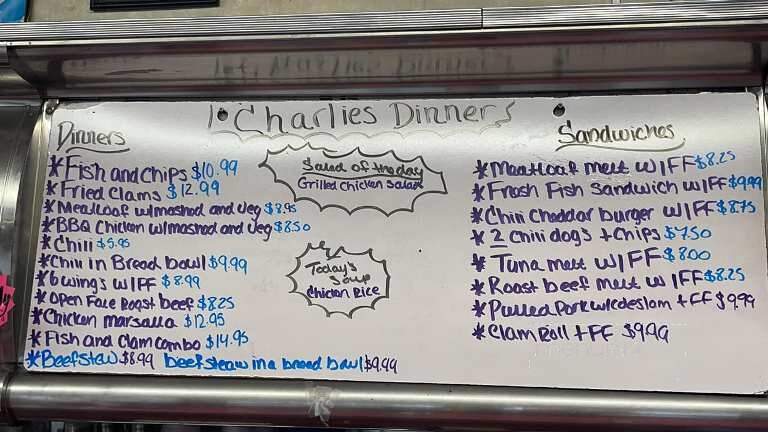 Charlies Dinners
Dinners
*Fish and chips $10.99
*Fried Clams $12.99
*Meatloaf w/mashed and veg $8.95
*BBQ Chicken w/mashed and veg $8.50
*Chili $5.95
*Chili in Bread bowl $9.99
*6 wings w/FF $8.99
*Open Face Roast beef $8.25
*Chicken marsalla $12.95
*Fish and Clam combo $14.95
*Beef stew $8.99 beef steaw in a bread bowl $9.99
Salad of the day
Grilled Chicken Salad
Today's
Soup
Chicken Rice
Sandwiches
*Meatloaf melt w/FF $8.25
*Fresh Fish Sandwich w/FF $9.99
*Chili Cheddar burger w/FF $8.75
*2 Chili dogs + Chips $7.50
*Tuna melt w/FF $8.00
*Roast beef melt w/FF $8.25
*Pulled Pork w/coleslaw + FF $9.99
*Clam Roll + FF $9.99